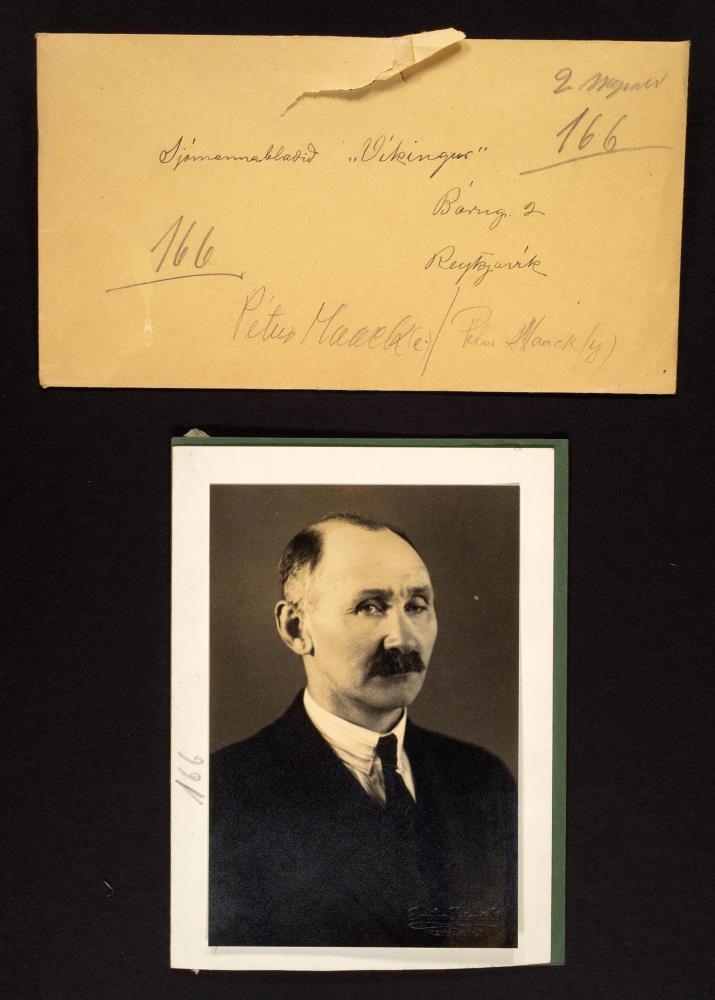 2 myndir
166
Sjómannablaðið „Víkingur“
Bárug. 2
Reykjavík
166
Pétur Maack (e) / Pétur Maack (y)
166